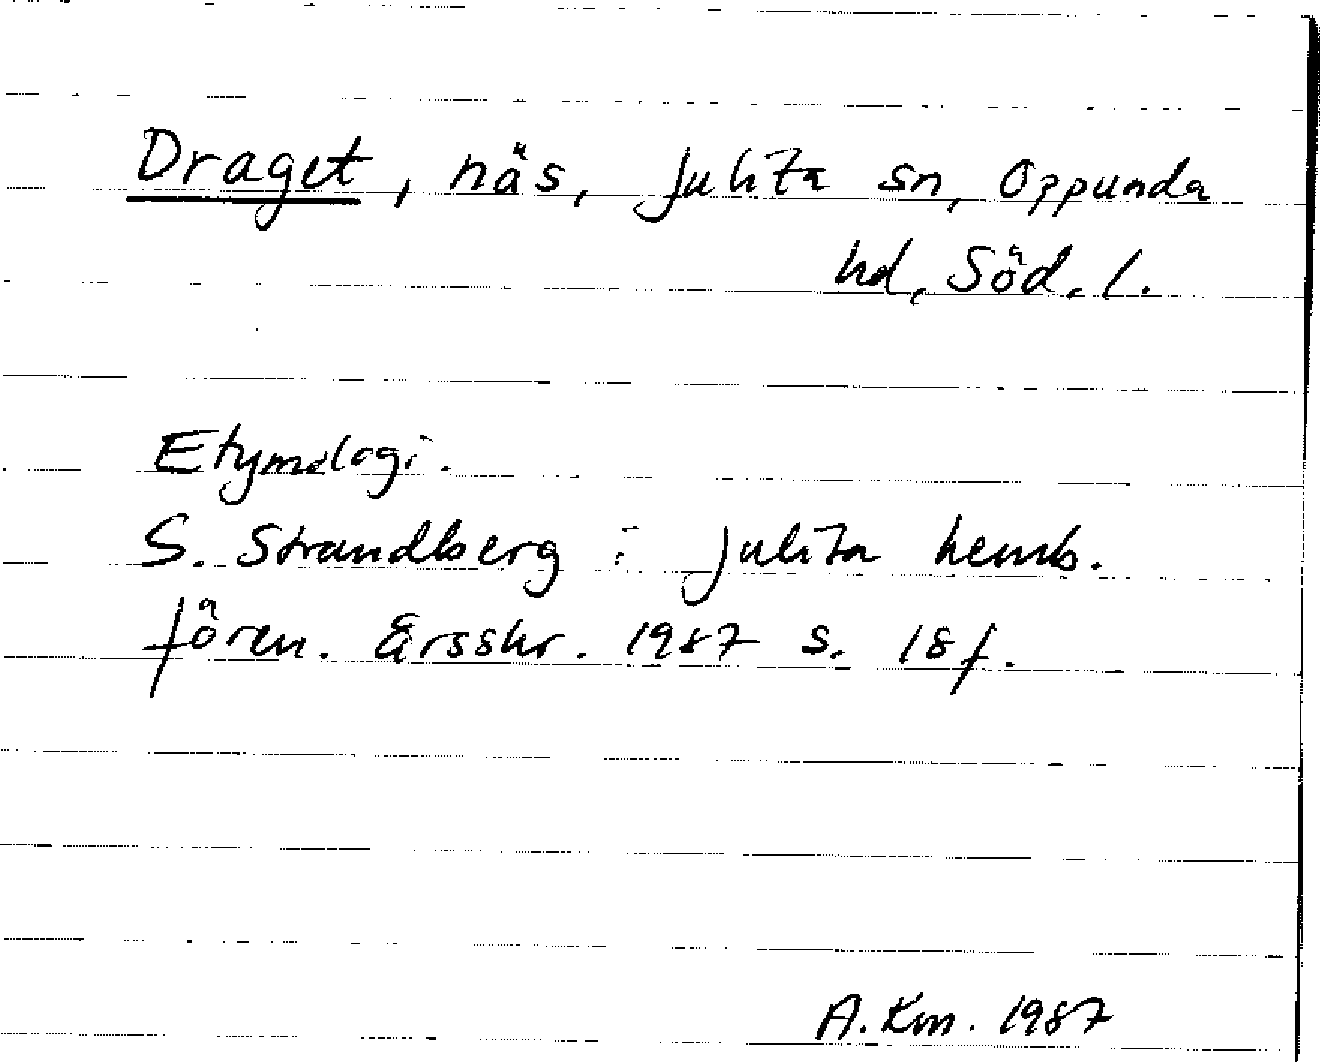 Draget, näs, Julita sn, Oppunda
hd, Söd. l.
Etymologi.
S. Strandberg i Julita hemb.
fören. årsskr. 1987 s. 18 f.
A. Km. 1987